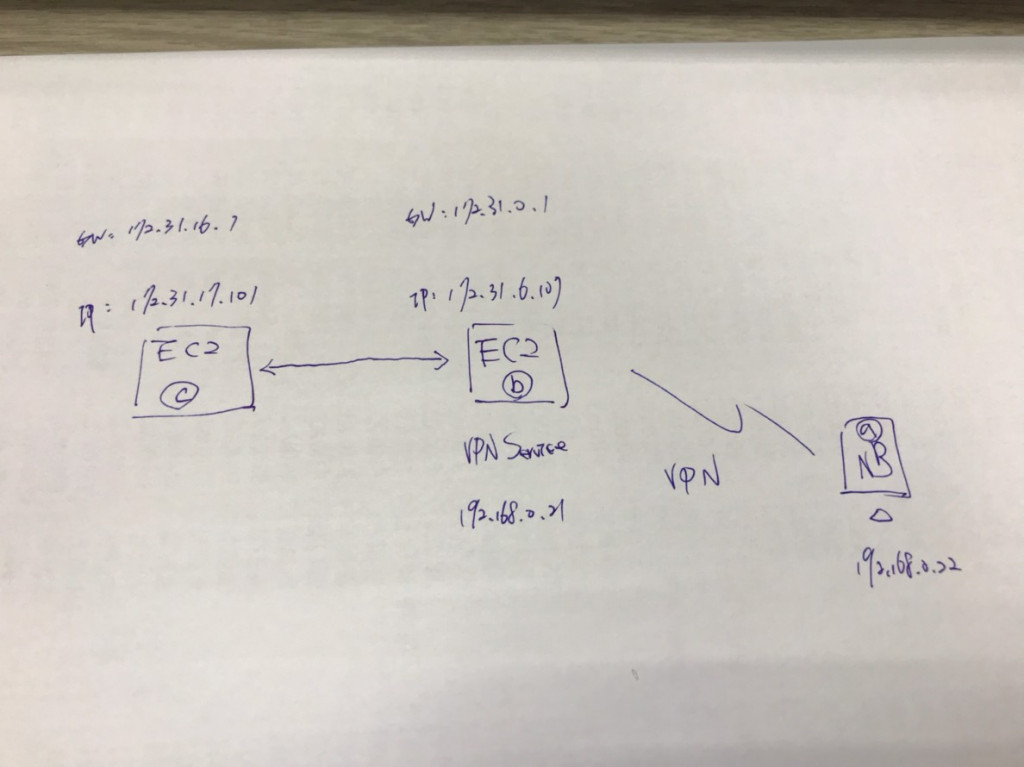 GW: 172.31.16.1
IP: 172.31.17.101
EC2
c
GW: 172.31.0.1
IP: 172.31.6.107
EC2
b
VPN Service
192.168.0.21
VPN
a
NB
192.168.0.22